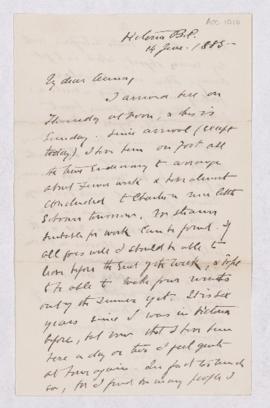 ACC 1010
Victoria B.C.
14 June. 1885
My dear
I arrived here on
Thursday at noon, & this is
Sunday. Since arrival (except
today) I have been on foot all
the time endeavoring to arrange
about Survey work & have almost
concluded to Charter a little
Schooner tomorrow. No steamer
suitable for work can be found. If
all goes well I should be able to
leave before the end of the week, & hope
to be able to make four months
out of the Summer yet. It is six
years since I was in Victoria
before, but now that I have been
here a day or two I feel quite
at home again. In fact too much
so, for I find so many people I